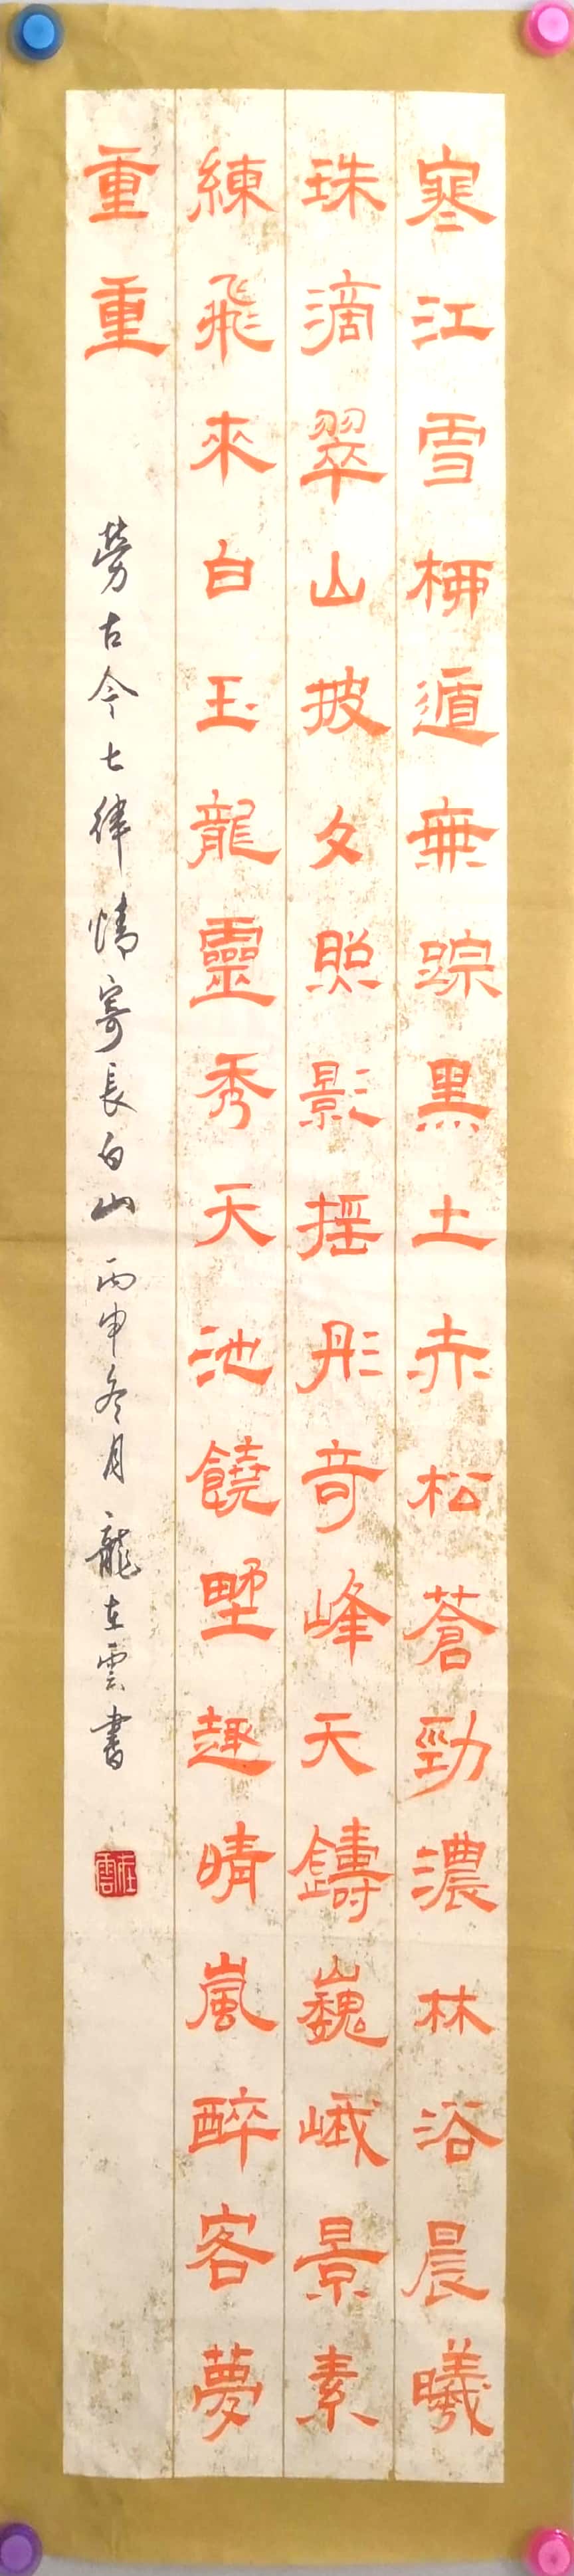 寒江雪柳遁無踪黑土赤松蒼勁濃林浴晨曦
珠滴翠山披夕照影摇彤奇峰天鑄巍峨景素
練飛來白玉龍靈秀天池饒墅趣晴嵐醉客夢
重重
劳古今七律情寄長白山丙申冬月龍在雲書
在雲